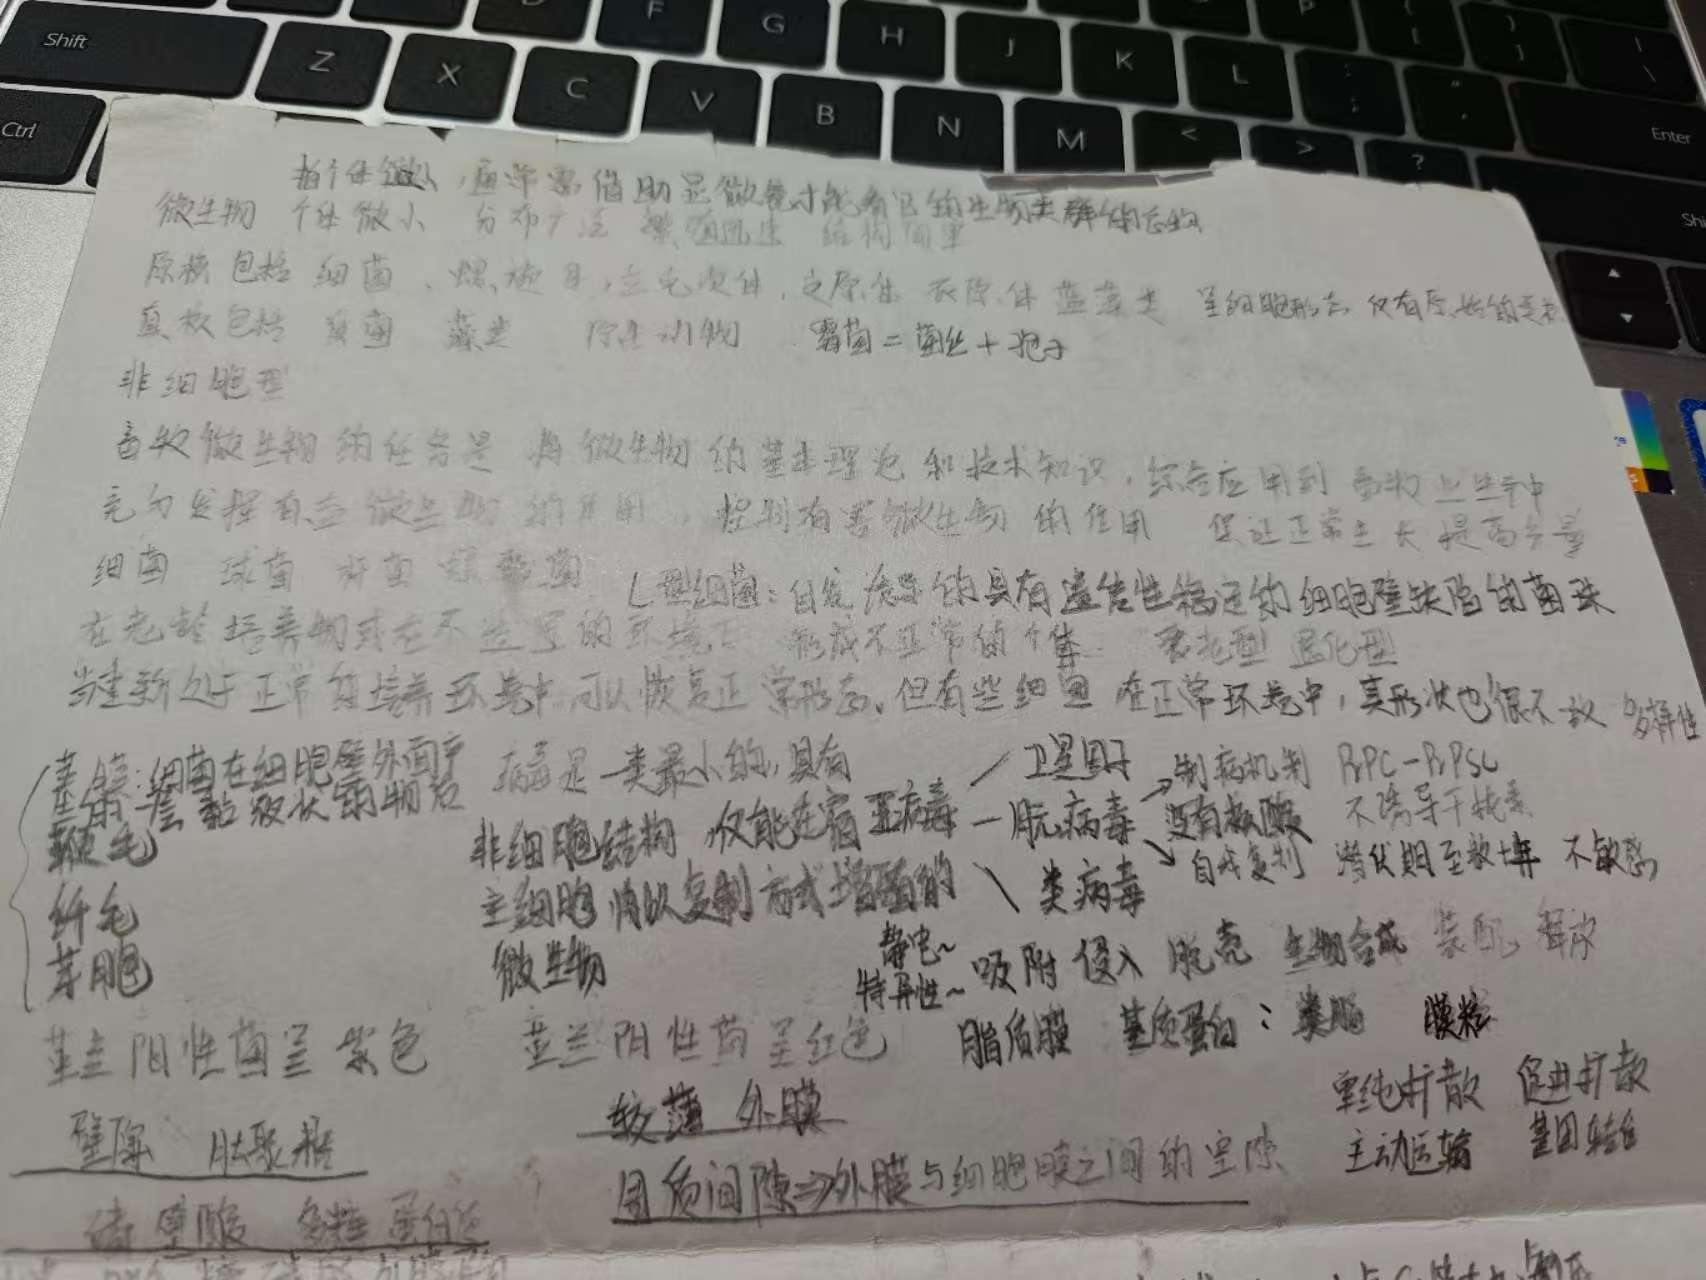 Shift Z X C V B N M < > ? Enter
Ctrl
F G H J K L P
指个体微小，通常需借助显微镜才能看见的生物类群的总称
微生物 个体微小 分布广泛 繁殖迅速 结构简单
原核包括 细菌、螺旋体，立克次体，支原体 衣原体 蓝藻类 呈细胞形态 仅有原始的
真核包括 真菌 藻类 原生动物 霉菌=菌丝+孢子
非细胞型
畜牧微生物的任务是 将微生物的基本理论和技术知识，综合应用到畜牧上生产中
充分发挥有益微生物的作用，控制有害微生物的作用 保证正常生长 提高产量
细菌 球菌 杆菌 螺形菌 L型细菌：自发 诱导的具有遗传性稳定的细胞壁缺陷的菌珠
在老龄培养物或在不适宜的环境下 形成不正常的个体 衰老型 退化型
当重新处于正常的培养环境中，可以恢复正常形态。但有些细菌 在正常环境中，其形状也很不 多样性
细菌在细胞壁外面
一层黏液状
鞭毛
纤毛
芽胞
病毒是一类最小的，具有
非细胞结构，仅能在宿
主细胞内以复制方式增殖的
微生物
亚病毒 卫星因子
朊病毒 → 制病机制 PrPC-PrPSC
没有核酸 不诱导干扰素
↘ 自我复制 潜伏期至数十年 不敏感
类病毒
静电~
特异性~ 吸附 侵入 脱壳 生物合成 装配 释放
革兰阳性菌呈紫色 革兰阳性菌呈红色 脂质膜 基质蛋白： 类脂 膜粒
壁厚 肽聚糖 较薄 外膜
周质间隙⇒外膜与细胞膜之间的空隙
单纯扩散 促进扩散
主动运输 基团转位
磷壁酸 多糖